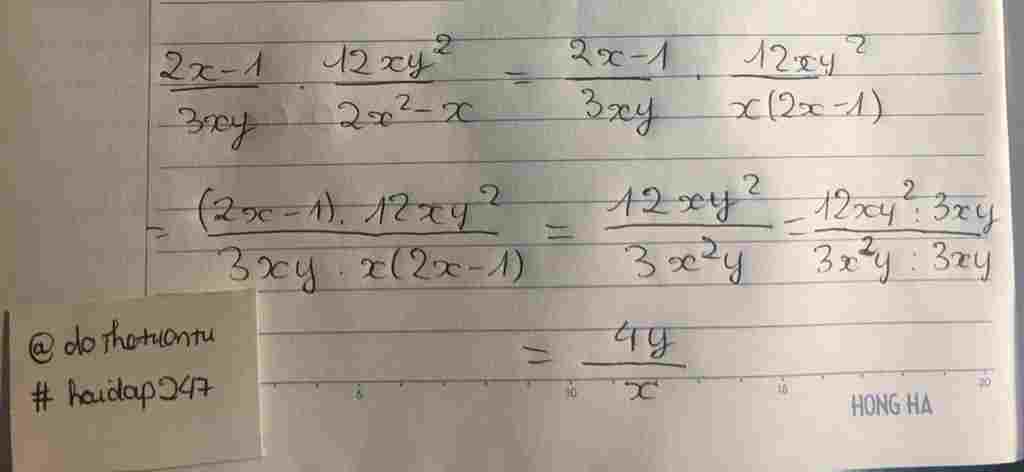 2x-1/3xy . 12xy²/2x²-x = 2x-1/3xy . 12xy²/x(2x-1)
= (2x-1). 12xy²/3xy . x(2x-1) = 12xy²/3x²y = 12xy² : 3xy/3x²y : 3xy
= 4y/x
@ dothotuontu
# hoidap247
5 10 15 20
HONG HA